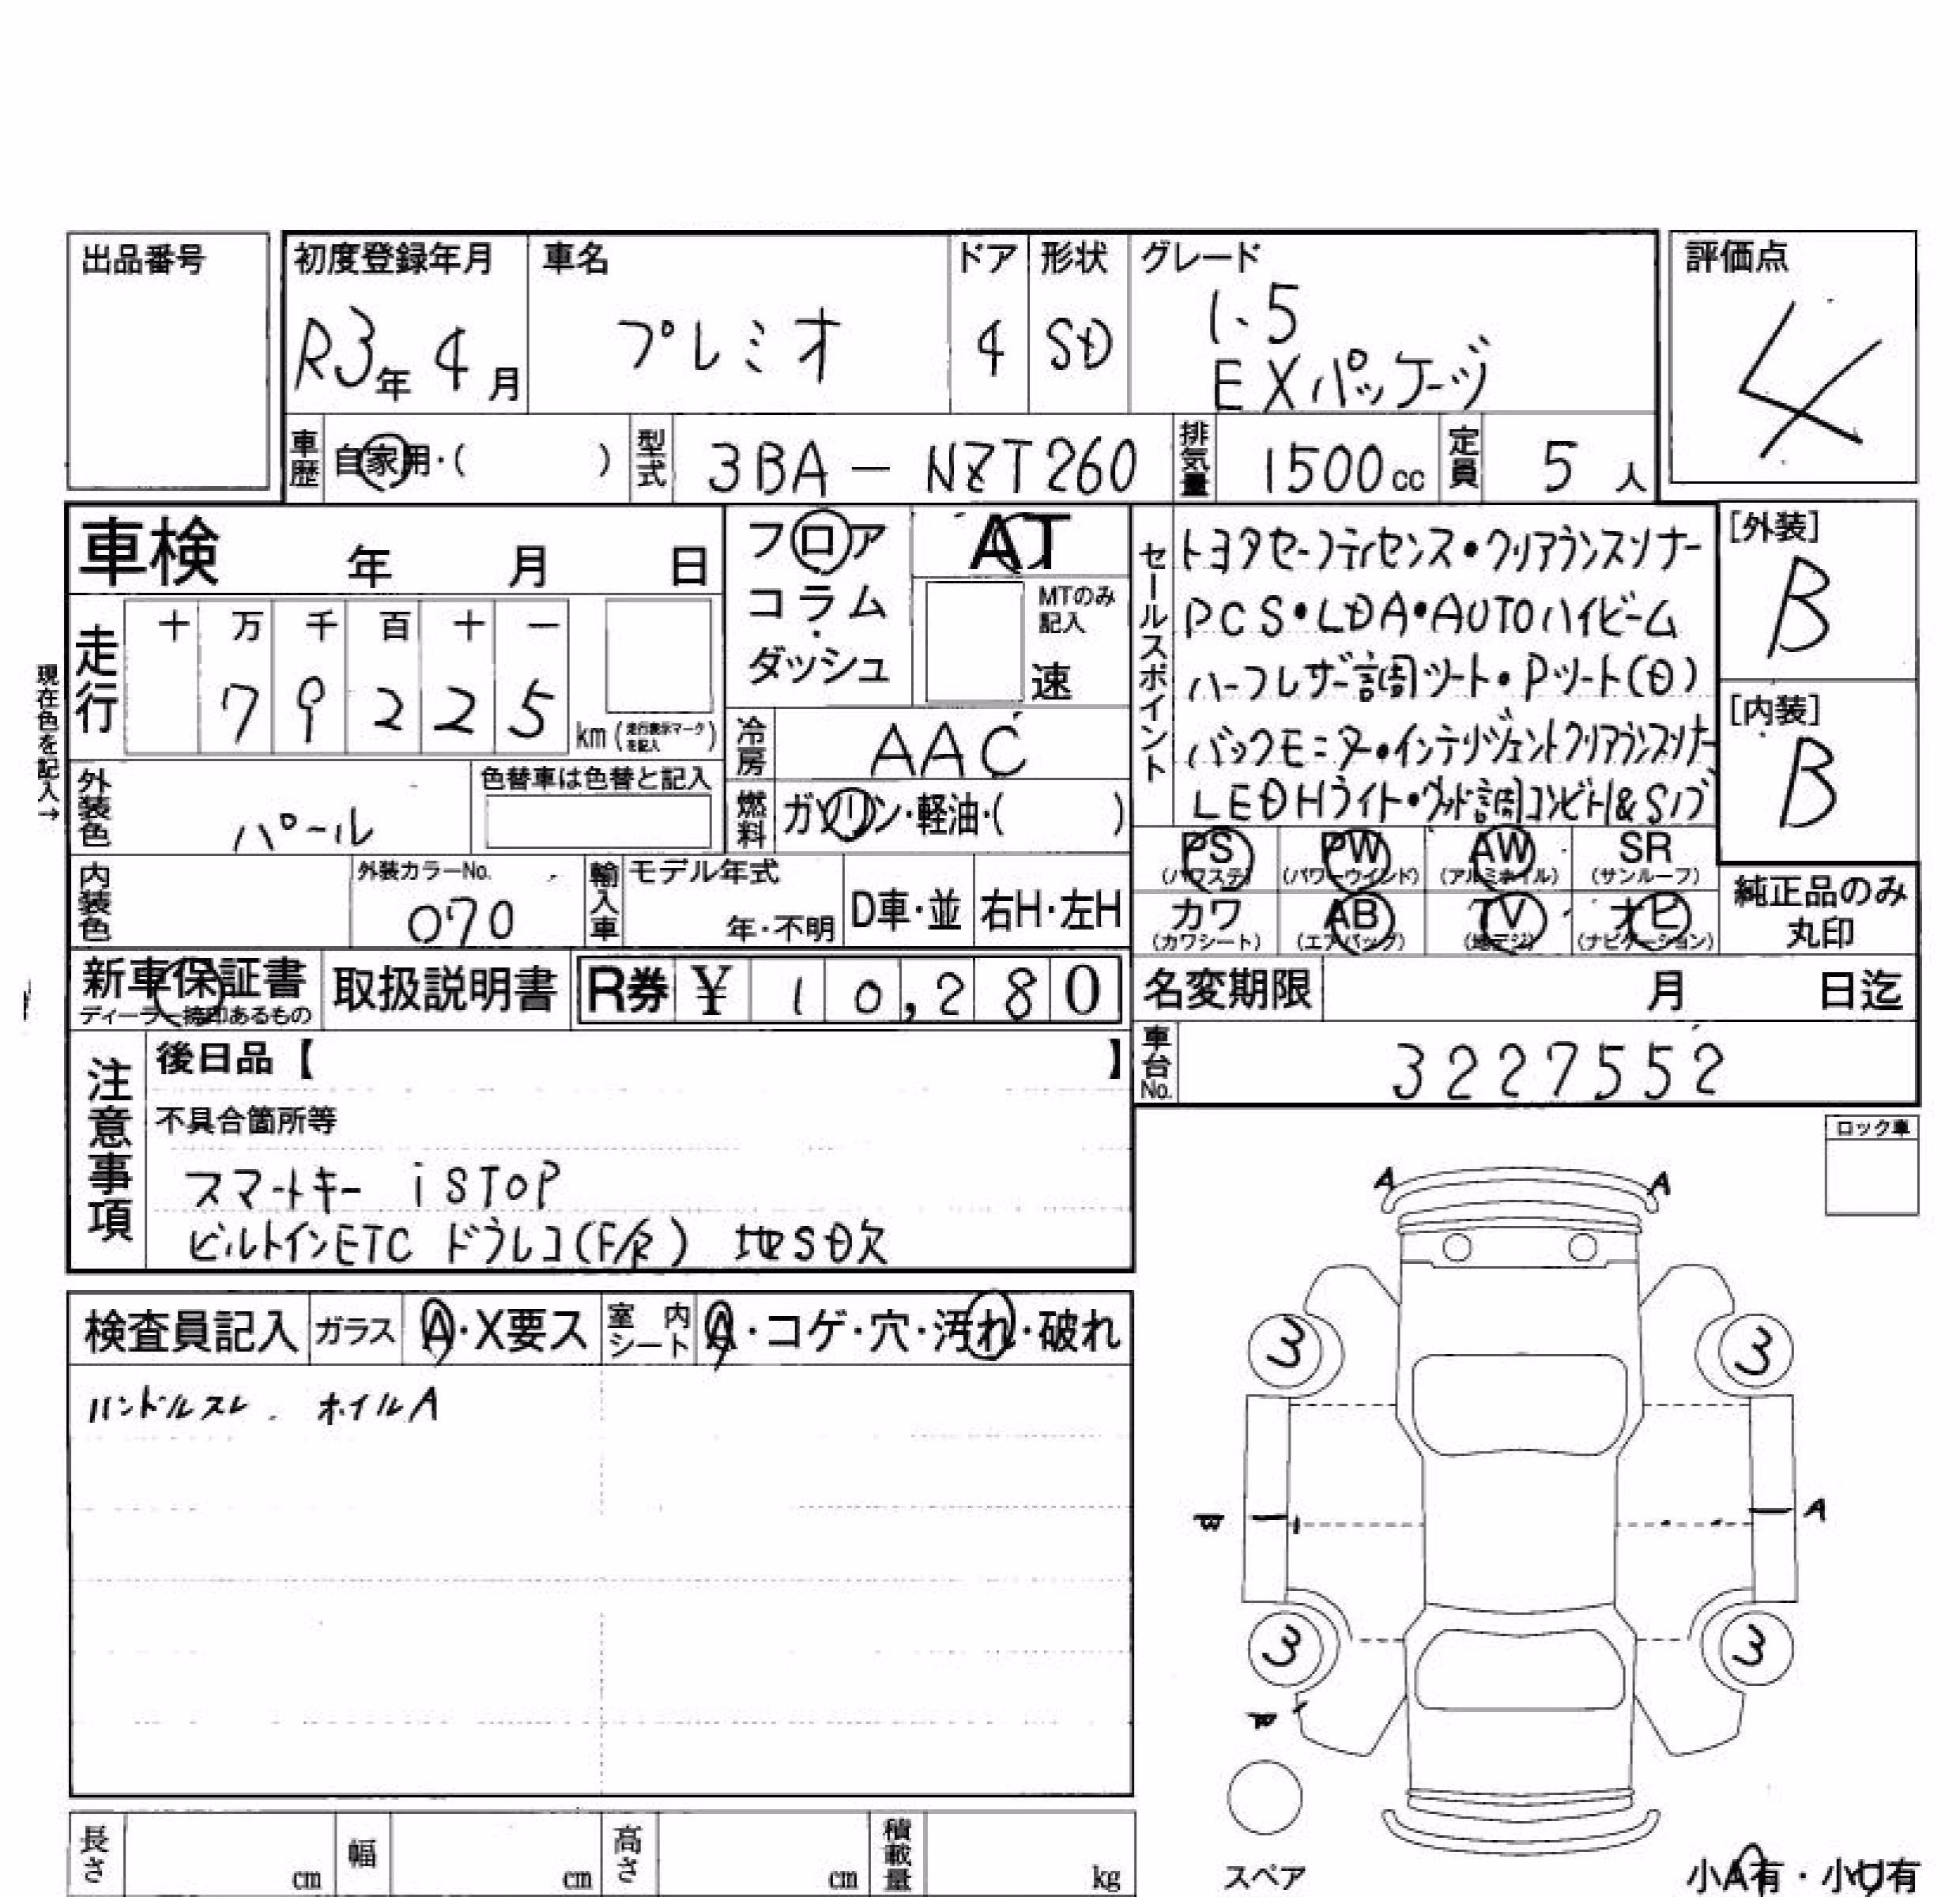 出品番号
初度登録年月 車名 ドア 形状 グレード 評価点
R3年 4月 プレミオ 4 SD 1.5
EXパッケージ
4
車歴 自家用・( ) 型式 3BA-NZT260 排気量 1500cc 定員 5人
車検 年 月 日
フロア AT
コラム・ MTのみ記入
ダッシュ 速
セールスポイント
トヨタセーフティセンス・クリアランスソナー
PCS・LDA・AUTOハイビーム
ハーフレザー調シート・Pシート(D)
バックモニター・インテリジェントクリアランスソナー
LEDHライト・ウッド調コンビH&Sノブ
[外装]
B
[内装]
B
現在色を記入→
走行 十 万 千 百 十 一
7 9 2 2 5 km (走行表示マークを記入)
冷房 AAC
外装色 パール 色替車は色替と記入
燃料 ガソリン・軽油・( )
PS (パワステ) PW (パワーウインド) AW (アルミホイル) SR (サンルーフ)
内装色 外装カラーNo. 070 輸入車 モデル年式 年・不明 D車・並 右H・左H
カワ (カワシート) AB (エアバッグ) TV (地デジ) ナビ (ナビゲーション)
純正品のみ
丸印
新車保証書 取扱説明書 R券 ¥ 1 0 , 2 8 0
ディーラー捺印あるもの
名変期限 月 日迄
車台No. 3227552
注意事項
後日品【 】
不具合箇所等
スマートキー iSTOP
ビルトインETC ドラレコ(F/R) 地SD欠
ロック車
検査員記入 ガラス A・X要ス 室内シート A・コゲ・穴・汚れ・破れ
ハンドルスレ. ホイルA
A A
3 3
W A
3 3
スペア
長さ cm 幅 cm 高さ cm 積載量 kg
小A有・小U有